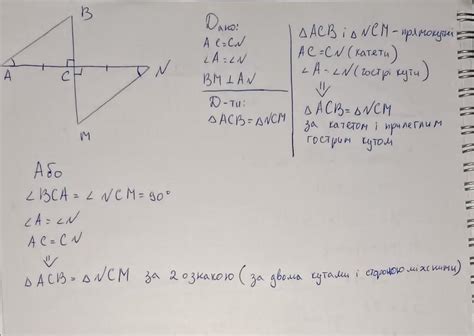 B
A
C
N
M
Дано:
AC=CN
∠A=∠N
BM⊥AN
Д-ти:
△ACB=△NCM
△ACB і △NCM - прямокутні
AC=CN (катети)
∠A-∠N (гострі кути)
⇓
△ACB=△NCM
за катетом і прилеглим
гострим кутом
Або
∠BCA=∠NCM=90°
∠A=∠N
AC=CN
⇓
△ACB=△NCM за 2 ознакою (за двома кутами і стороною між ними)